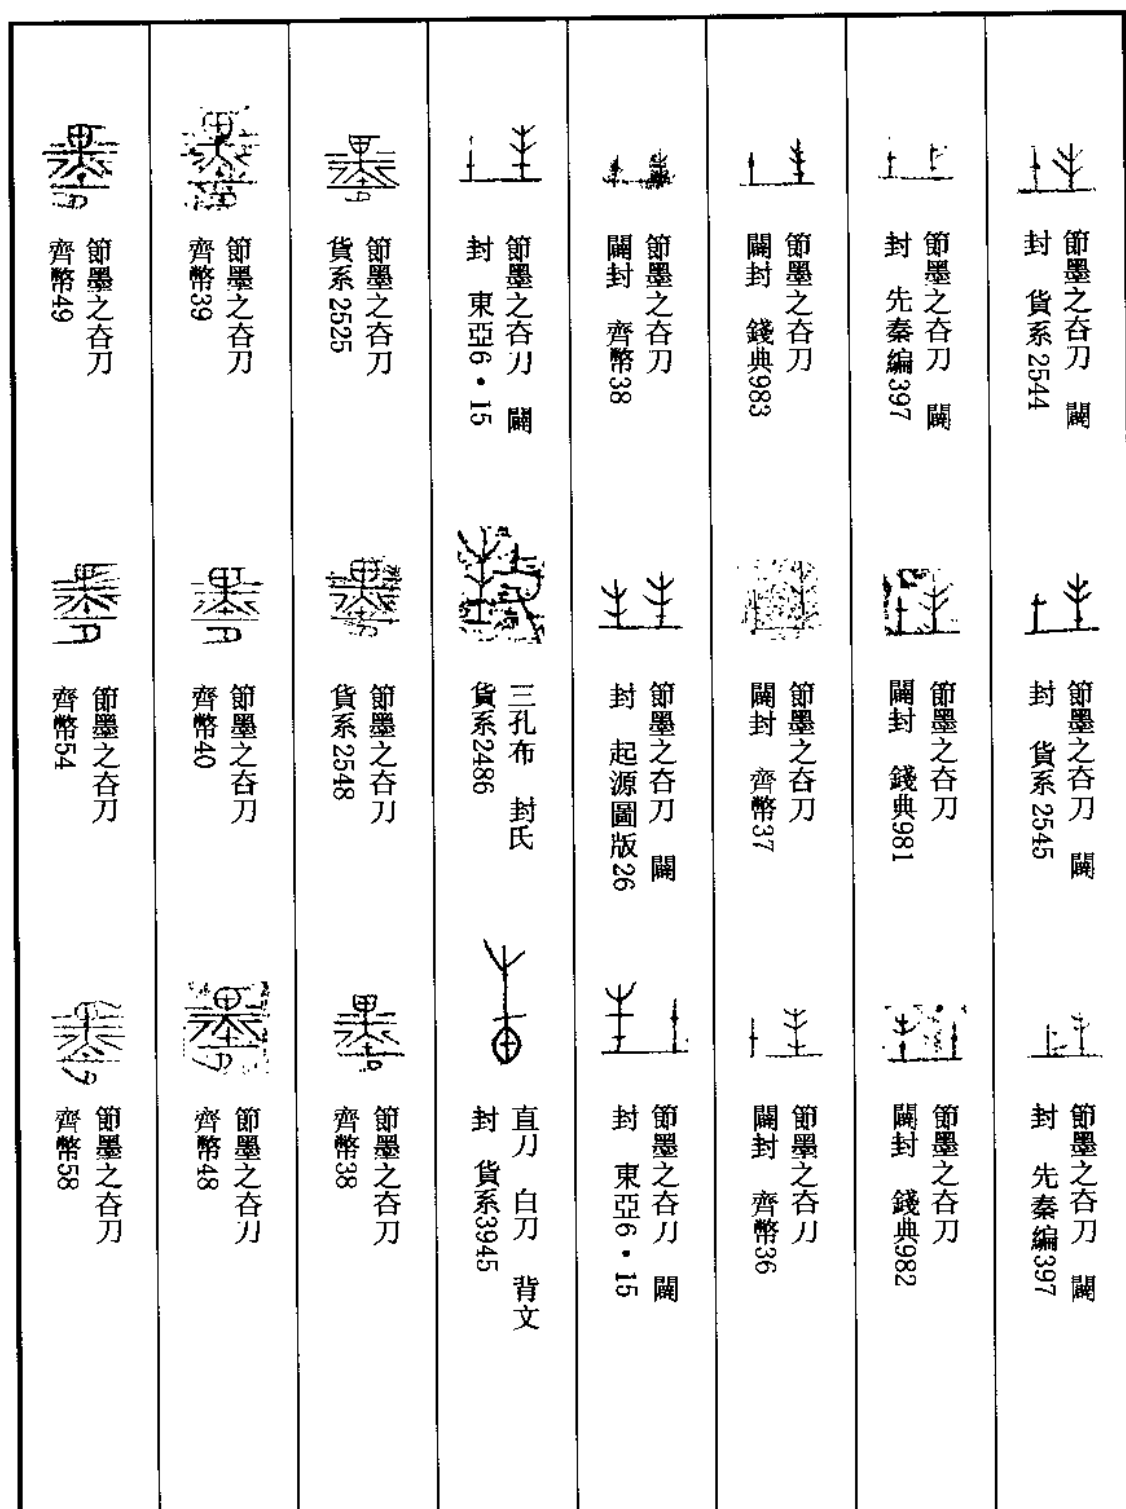 節墨之呑刀　闢
封　貨系2544
節墨之呑刀　闢
封　貨系2545
節墨之呑刀　闢
封　先秦編397
節墨之呑刀　闢
封　先秦編397
節墨之呑刀
闢封　錢典981
節墨之呑刀
闢封　錢典982
節墨之呑刀
闢封　錢典983
節墨之呑刀
闢封　齊幣37
節墨之呑刀
闢封　齊幣36
節墨之呑刀
闢封　齊幣38
節墨之呑刀　闢
封　起源圖版26
節墨之呑刀　闢
封　東亞6・15
節墨之呑刀　闢
封　東亞6・15
三孔布　封氏
貨系2486
直刀　白刀　背文
封　貨系3945
節墨之呑刀
貨系2525
節墨之呑刀
貨系2548
節墨之呑刀
齊幣38
節墨之呑刀
齊幣39
節墨之呑刀
齊幣40
節墨之呑刀
齊幣48
節墨之呑刀
齊幣49
節墨之呑刀
齊幣54
節墨之呑刀
齊幣58